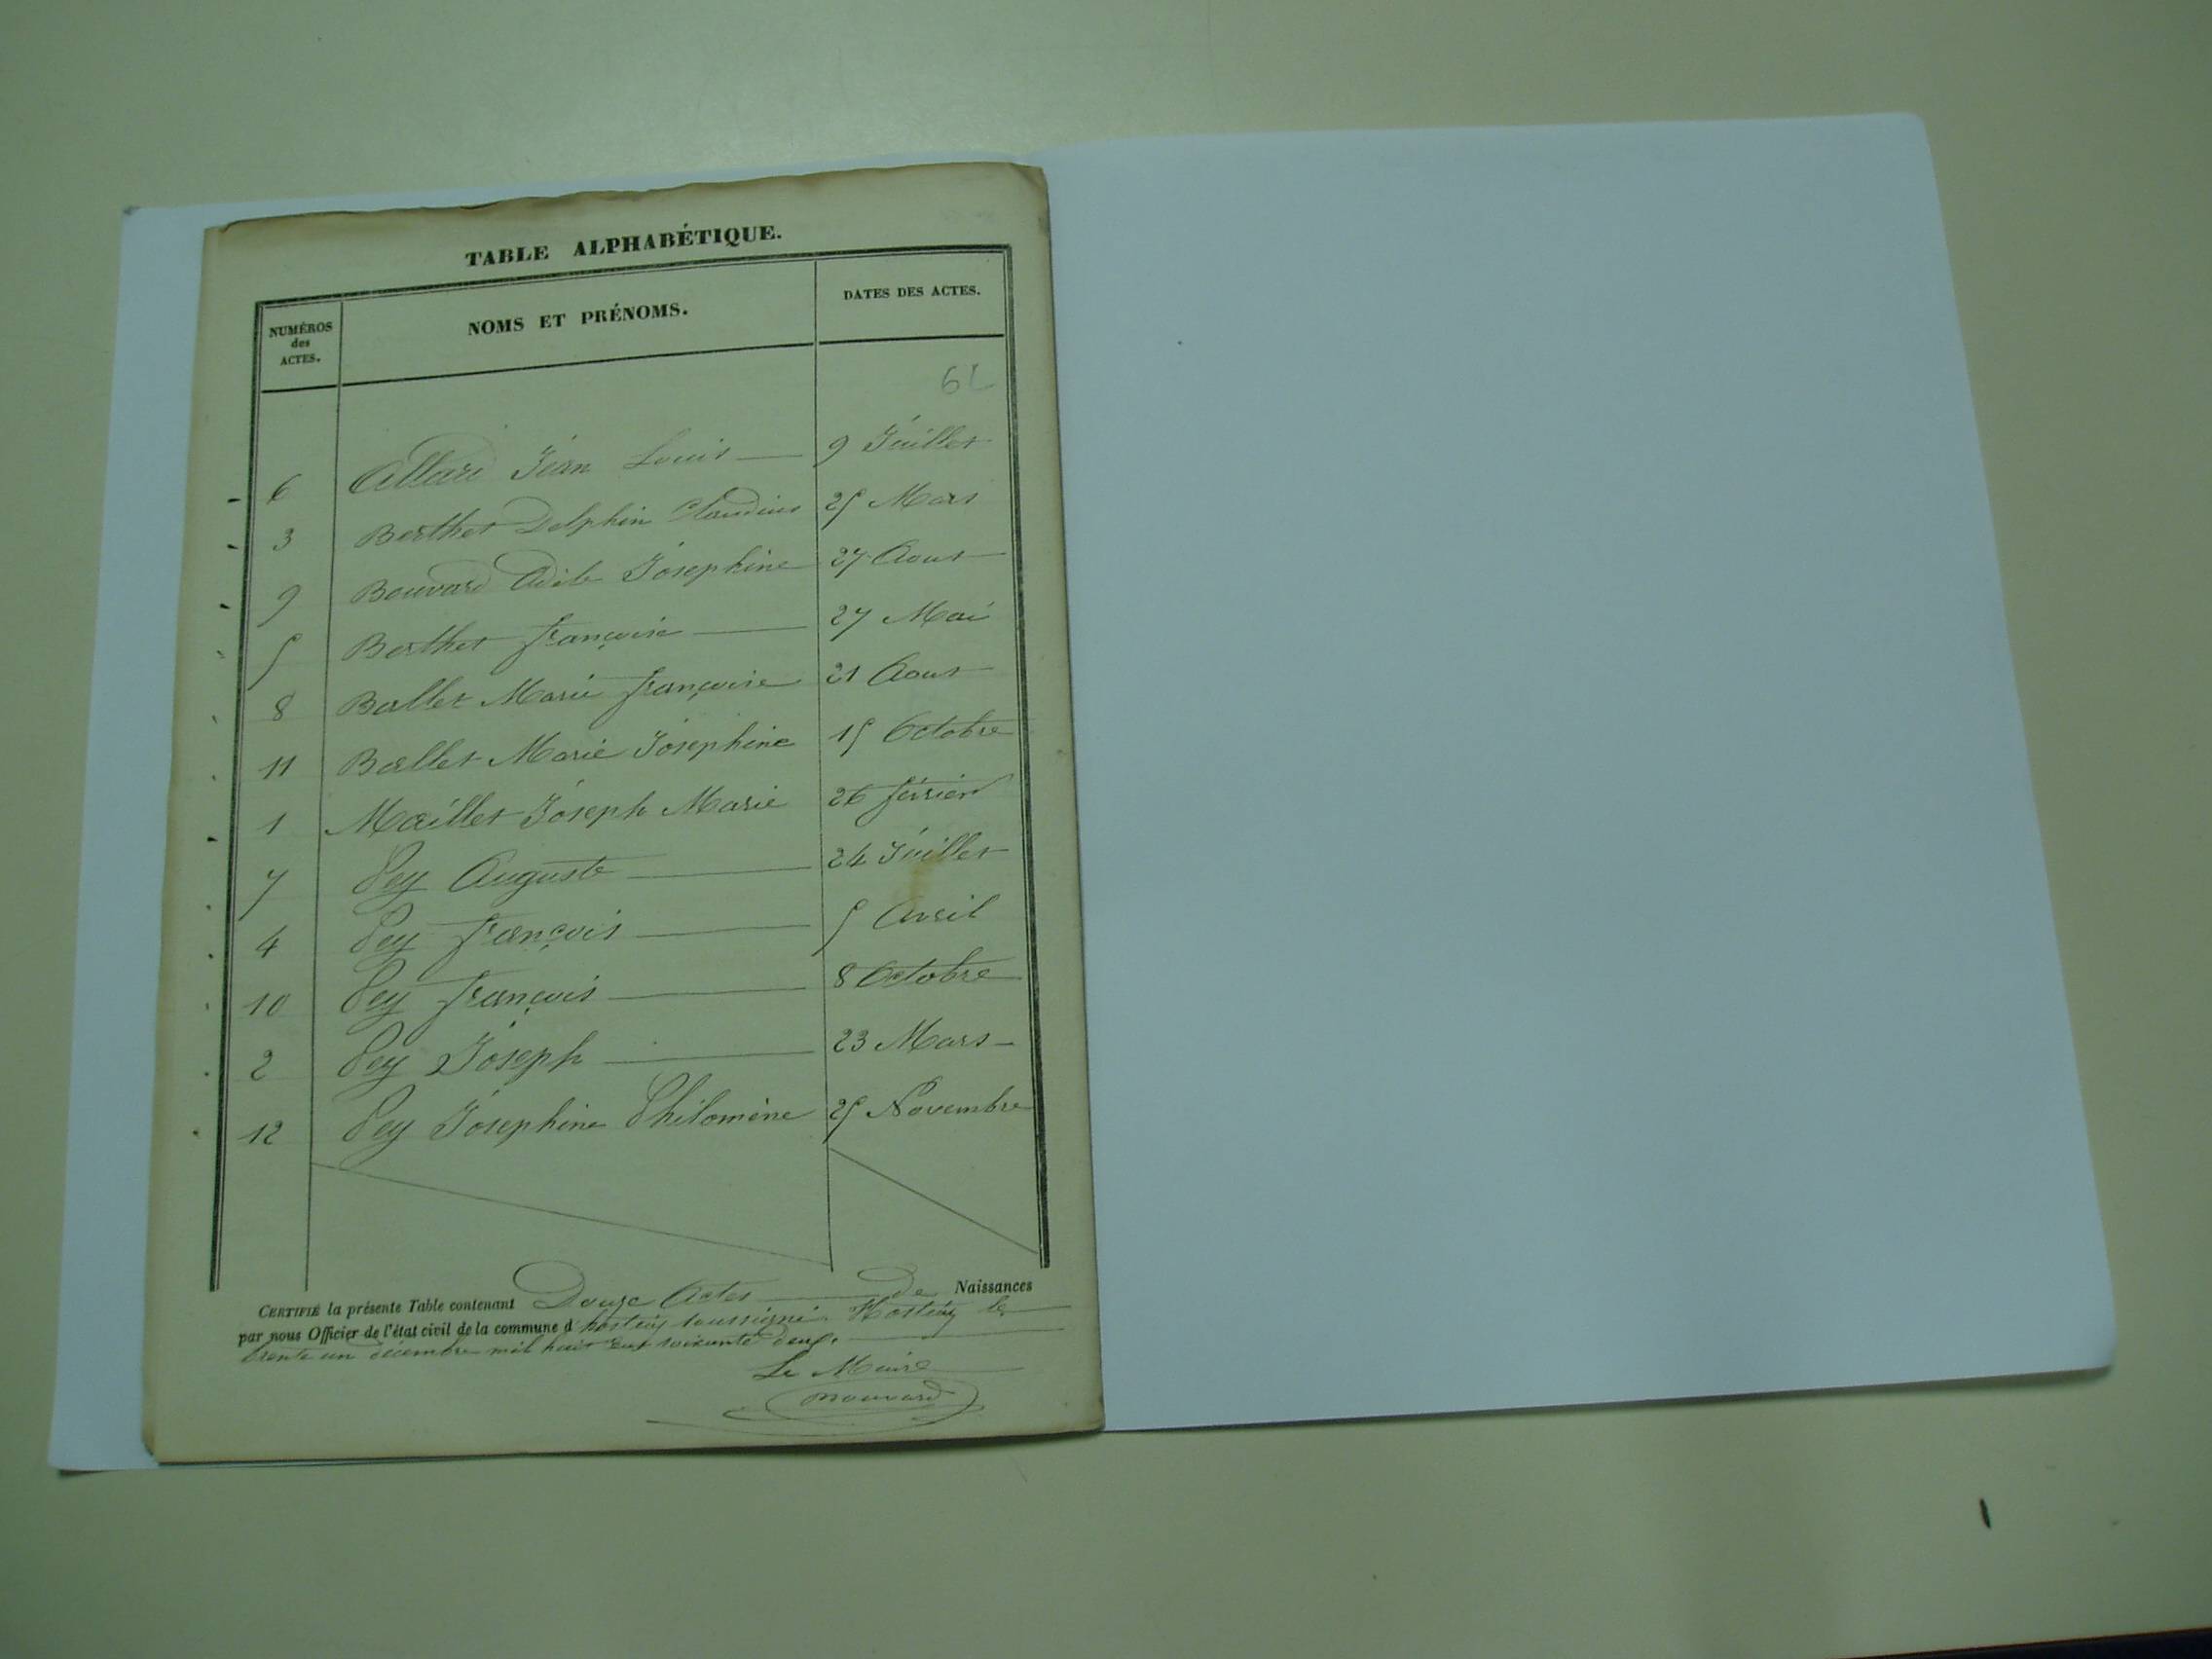 TABLE ALPHABÉTIQUE.
NUMÉROS des ACTES. NOMS ET PRÉNOMS. DATES DES ACTES.
62
6 Allard Jean Louis 9 Juillet
3 Berthet Delphin Claudius 25 Mars
9 Bouvard Adèle Josephine 27 Aout
5 Berthet françoise 27 Mai
8 Ballet Marie françoise 21 Aout
11 Ballet Marie Josephine 15 Octobre
1 Maillet Joseph Marie 26 février
7 Pey Auguste 24 Juillet
4 Pey françois 5 Avril
10 Pey françois 8 Octobre
2 Pey Joseph 23 Mars
12 Pey Josephine Philomène 25 Novembre
CERTIFIÉ la présente Table contenant Douze Actes de Naissances
par nous Officier de l'état civil de la commune d'hosteny soussigné. Hosteny le
trente un decembre mil huit cent soixante deux.
Le Maire
Bouvard